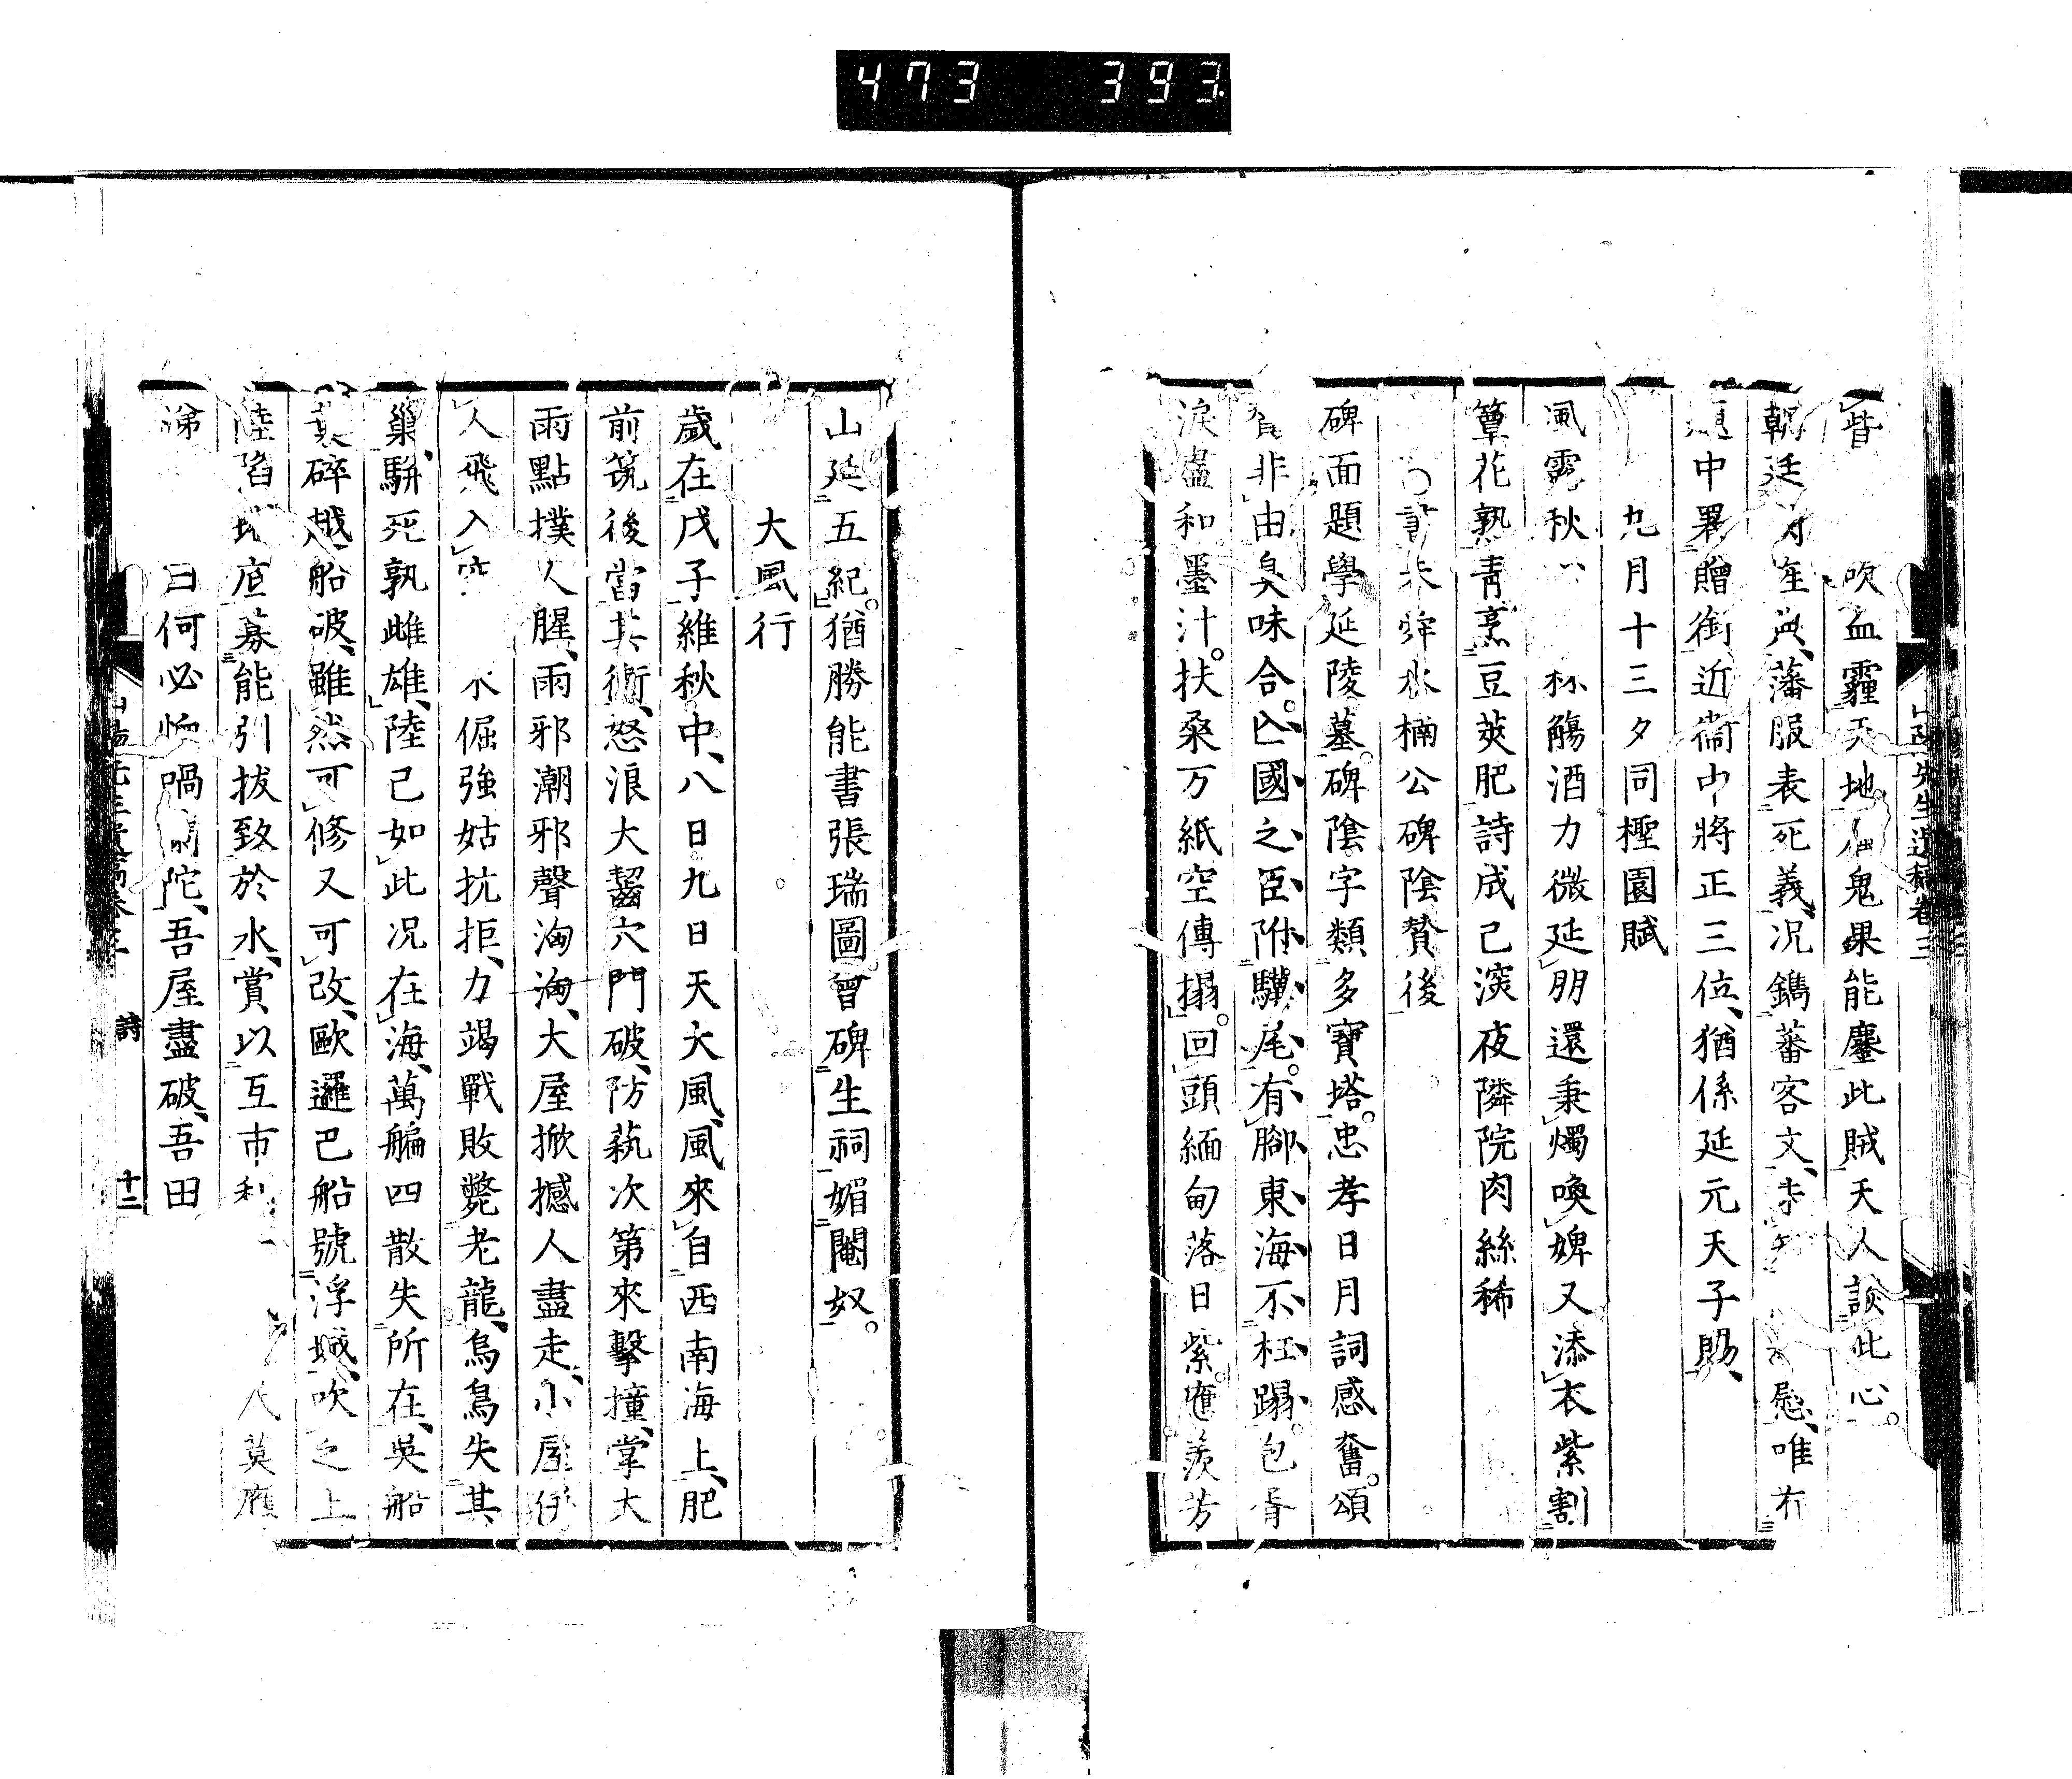 473 393
山陽先生遺稿卷三
眥 吹血霾天地 鬼果能鏖此賊天人談此心
朝廷 藩服表死義况鐫蕃客文 慰唯有
題中署贈銜近衞中將正三位猶係延元天子賜
九月十三夕同樫園賦
風露秋 杯觴酒力微延朋還秉燭喚婢又添衣紫割
簟花熟靑烹豆莢肥詩成已深夜隣院肉絲稀
書朱舜水楠公碑陰贊後
碑面題學延陵墓碑陰字類多寶塔忠孝日月詞感奮頌
非由臭味合亡國之臣附驥尾有腳東海不枉蹋包胥
淚盡和墨汁扶桑万紙空傳搨回頭緬甸落日紫癉羨芳
山延五紀猶勝能書張瑞圖曾碑生祠媚閹奴
大風行
歲在戊子維秋中八日九日天大風風來自西南海上肥
前筑後當其衝怒浪大齧穴門破防藝次第來擊撞掌大
雨點撲人腥雨邪潮邪聲洶洶大屋掀撼人盡走小屋
人飛入 木倔強姑抗拒力竭戰敗斃老龍烏鳥失其
巢駢死孰雌雄陸已如此况在海萬艑四散失所在吳船
碎越船破雖然可修又可改歐邏巴船號浮城吹之上
陸陷 底募能引拔致於水賞以互市利 人莫應
涕 曰何必恤喎蘭陀吾屋盡破吾田
詩 十二